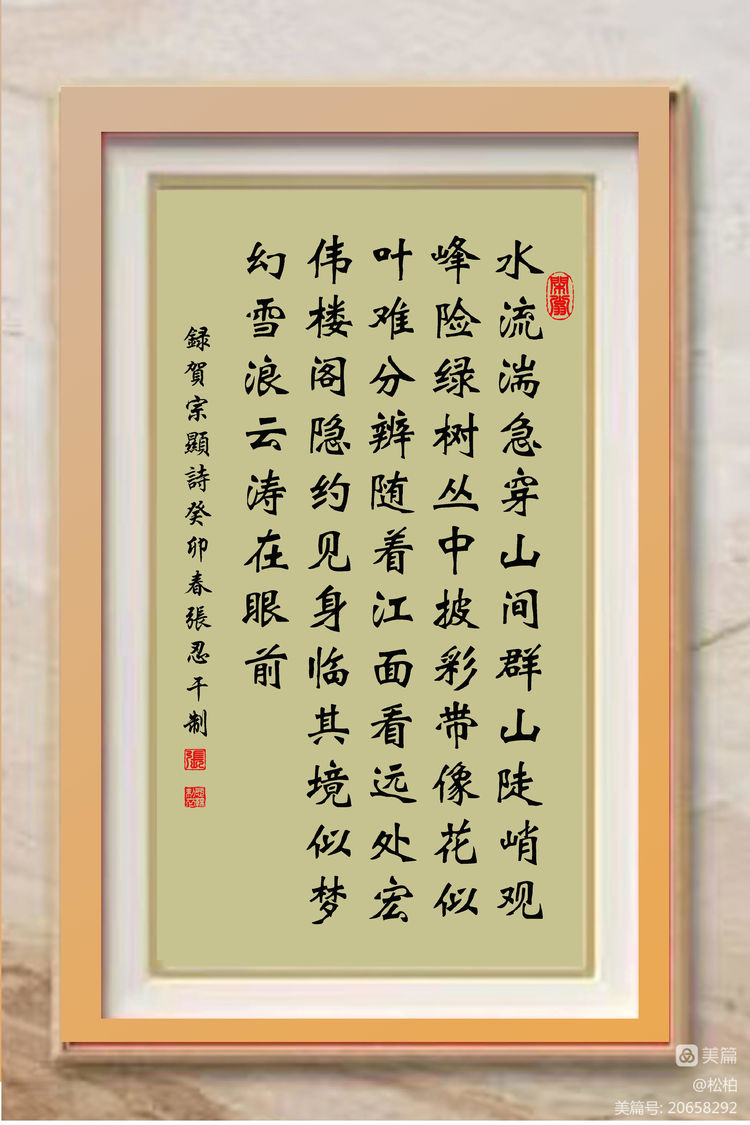 水流湍急穿山间群山陡峭观
峰险绿树丛中披彩带像花似
叶难分辨随着江面看远处宏
伟楼阁隐约见身临其境似梦
幻雪浪云涛在眼前
録賀宗顯詩癸卯春張忍干制
張
美篇
@松柏
美篇号: 20658292